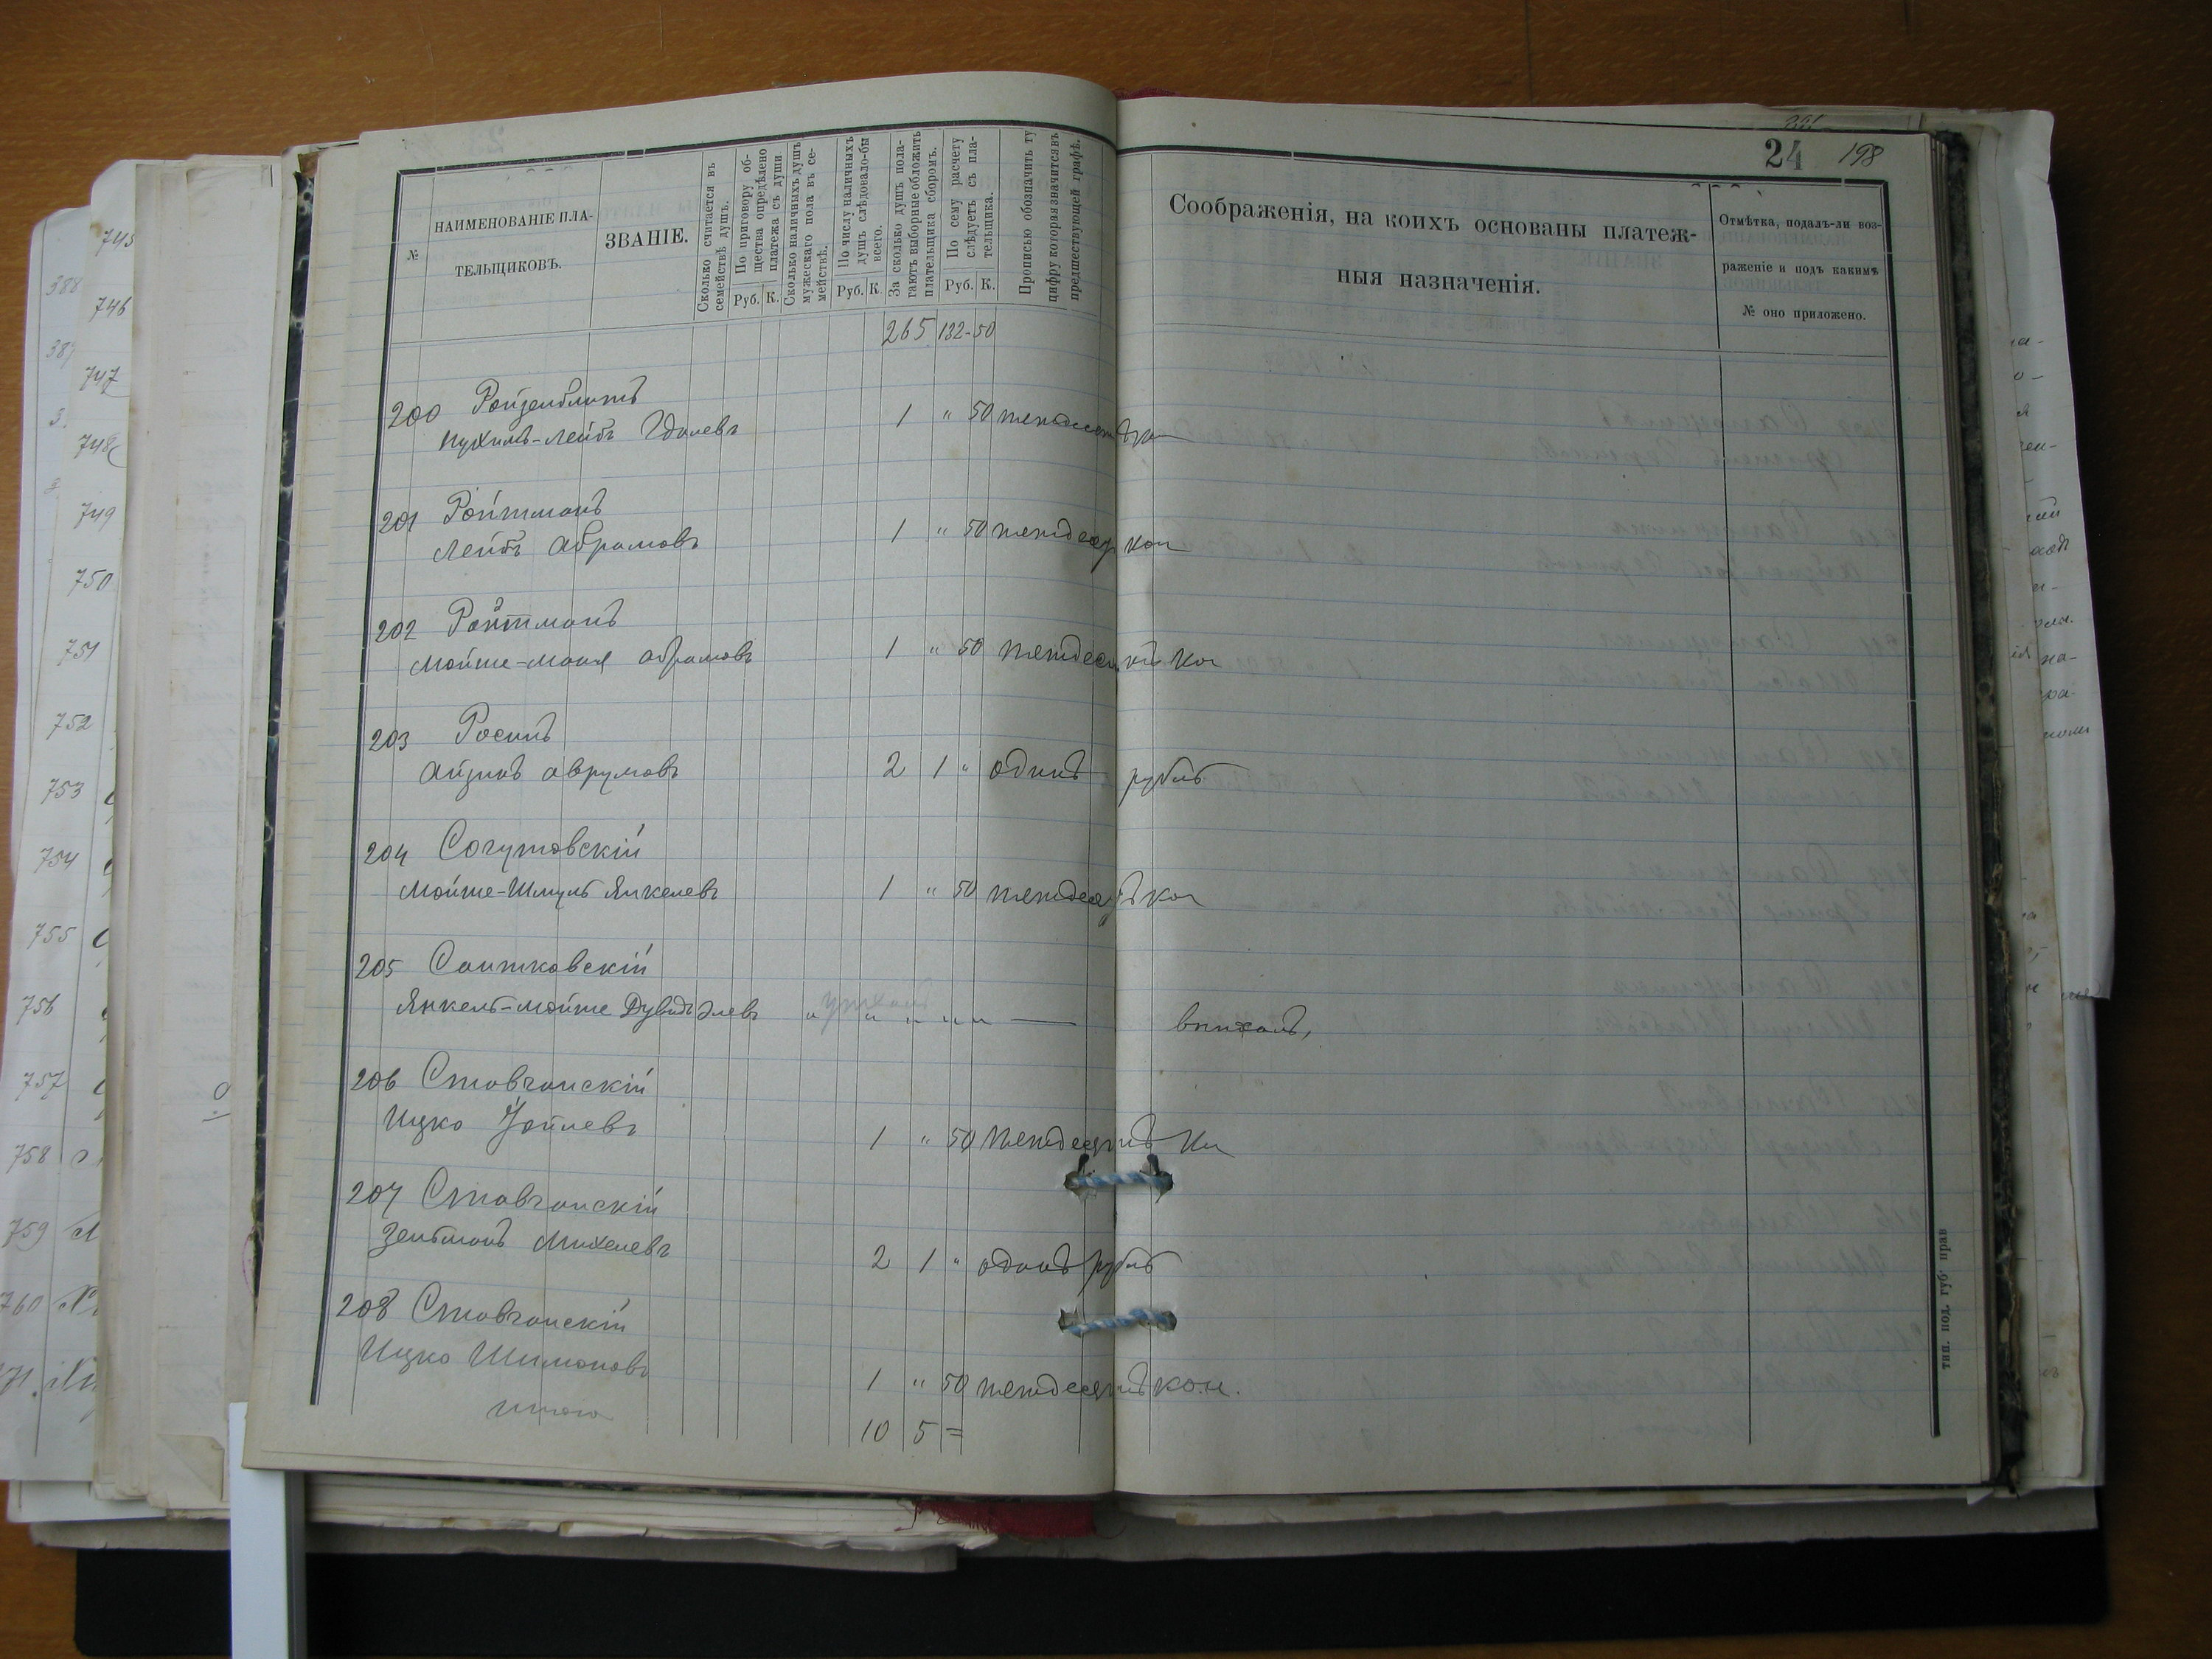 24 198
№
НАИМЕНОВАНІЕ ПЛА-
ТЕЛЬЩИКОВЪ.
ЗВАНІЕ.
Сколько считается въ
семействѣ душъ.
По приговору об-
щества опредѣлено
платежа съ души
Руб. К.
Сколько наличныхъ душъ
мужескаго пола въ се-
мействѣ.
По числу наличныхъ
душъ слѣдовало-бы
всего.
Руб. К.
За сколько душъ пола-
гаютъ выборные обложить
плательщика сборомъ.
По сему расчету
слѣдуетъ съ пла-
тельщика.
Руб. К.
Прописью обозначить ту
цифру которая значится въ
предшествующей графѣ.
Соображенія, на коихъ основаны платеж-
ныя назначенія.
Отмѣтка, подалъ-ли воз-
раженіе и подъ какимъ
№ оно приложено.
265 132-50
200 Ройзенблитъ
Нухимъ-Лейбъ Гдалевъ 1 " 50
201 Ройтманъ
Лейбъ Абрамовъ 1 " 50 петдесят коп
202 Ройтманъ
Мойше-Маня Абрамовъ 1 " 50 петдесят коп
203 Росинъ
Айзикъ Аврумовъ 2 1 " одинъ рубль
204 Согутовскій
Мойше-Шмуль Янкелевъ 1 " 50 петдесятъ коп
205 Ситковскій
Янкель-Мойше Дувидъ Элевъ " " " " " — выихалъ,
206 Ставчанскій
Ицко Зойлевъ 1 " 50 петдесятъ
207 Ставчанскій
Зельманъ Михелевъ 2 1 " одинъ рубль
208 Ставчанскій
Ицко Шимоновъ 1 " 50 петдесятъ коп.
итого 10 5 =
тип. под. губ. прав
745
746
747
748
749
750
751
752
753
754
755
756
757
758
759
760